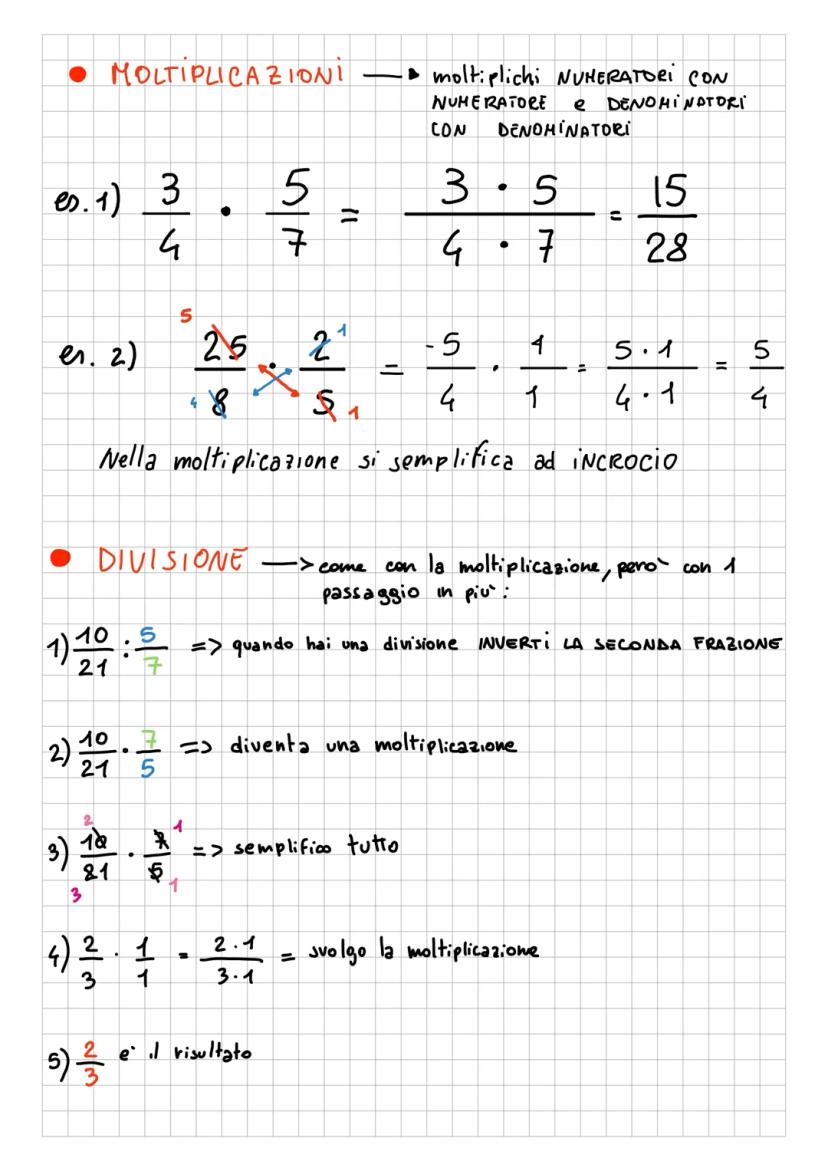 • MOLTIPLICAZIONI → moltiplichi NUMERATORI CON
NUMERATORE e DENOMINATORI
CON DENOMINATORI
es. 1) 3/4 · 5/7 = 3 · 5 / 4 · 7 = 15/28
es. 2) 25/8 · 2/5 = -5/4 · 1/1 = 5·1/4·1 = 5/4
5 1
4 1
Nella moltiplicazione si semplifica ad INCROCIO
• DIVISIONE —> come con la moltiplicazione, però con 1
passaggio in più:
1) 10/21 : 5/7 => quando hai una divisione INVERTI LA SECONDA FRAZIONE
2) 10/21 · 7/5 => diventa una moltiplicazione
2 1
3) 10/21 · 7/5 => semplifico tutto
3 1
4) 2/3 · 1/1 = 2·1/3·1 = svolgo la moltiplicazione
5) 2/3 e' il risultato